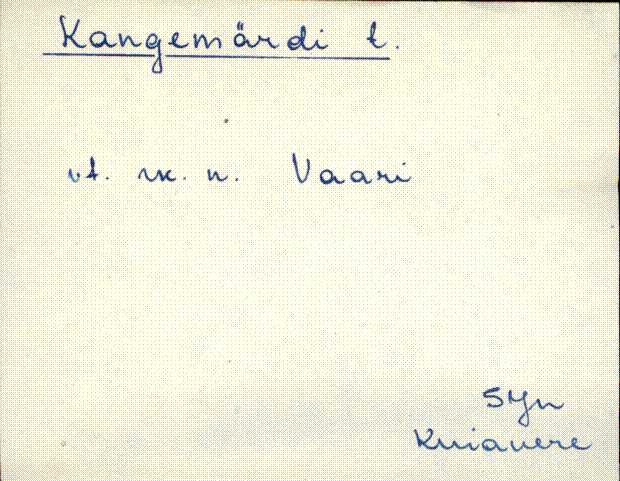 Kangemärdi t.
vt. rk. n. Vaari
SJn
Kuiavere